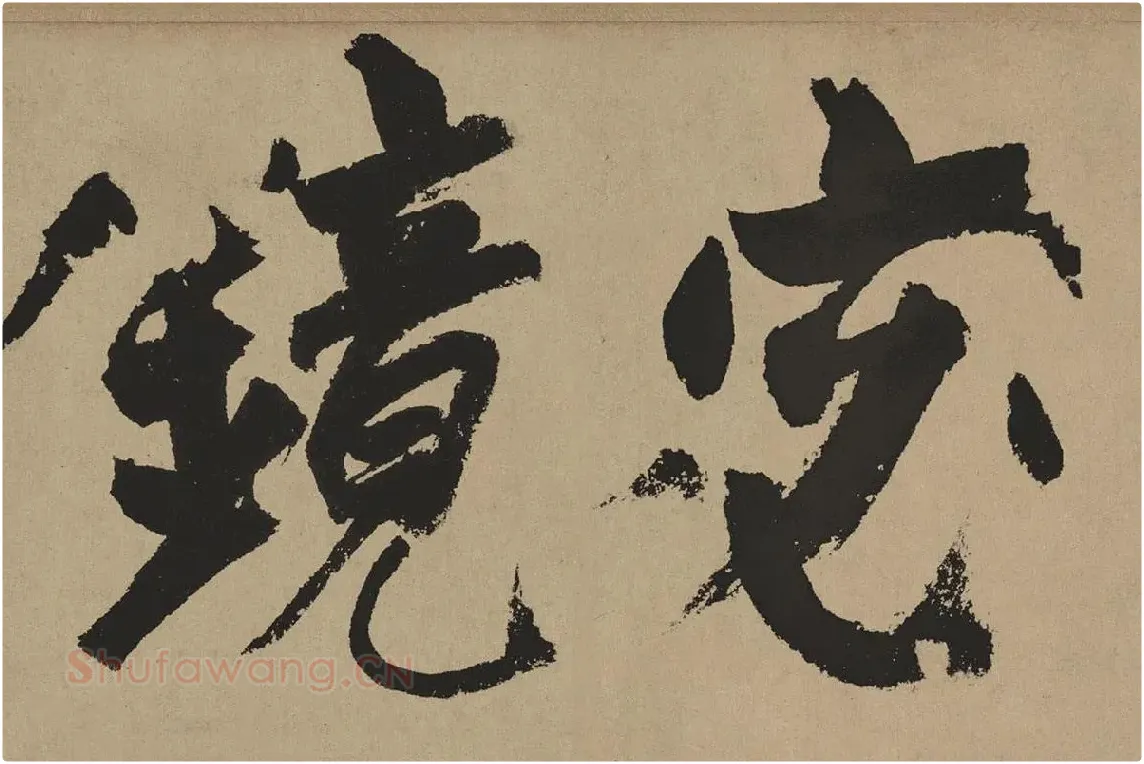 宓
鏡
Shufawang.CN